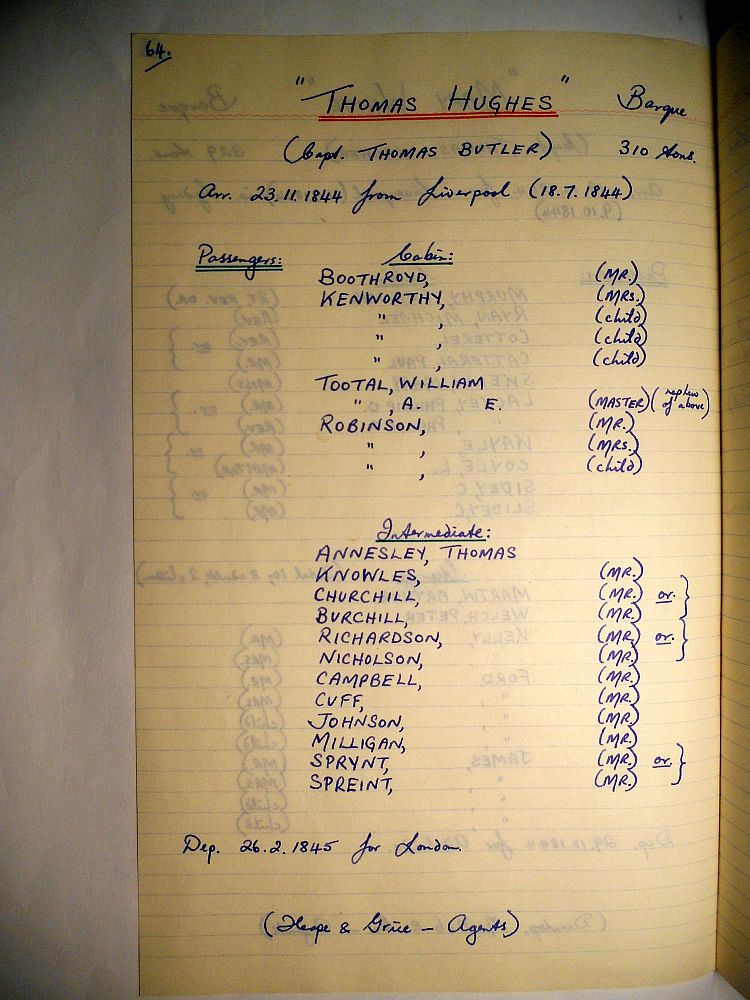 64.
"THOMAS HUGHES" Barque
(Capt. THOMAS BUTLER) 310 tons.
Arr. 23.11.1844 from Liverpool (18.7.1844)
Passengers: Cabin:
BOOTHROYD, (MR.)
KENWORTHY, (MRS.)
" , (child)
" , (child)
" , (child)
TOOTAL, WILLIAM
" , A. E. (MASTER) (nephew of above)
ROBINSON, (MR.)
" , (MRS.)
" , (child)
Intermediate:
ANNESLEY, THOMAS
KNOWLES, (MR.)
CHURCHILL, (MR.) or. }
BURCHILL, (MR.)
RICHARDSON, (MR.) or. }
NICHOLSON, (MR.)
CAMPBELL, (MR.)
CUFF, (MR.)
JOHNSON, (MR.)
MILLIGAN, (MR.)
SPRYNT, (MR.) or. }
SPREINT, (MR.)
Dep. 26.2.1845 for London.
(Heape & Grice – Agents)